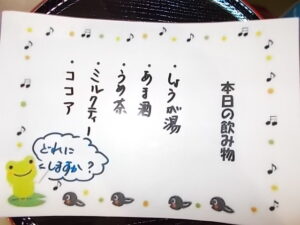 本日の飲み物
・しょうが湯
・あま酒
・うめ茶
・ミルクティー
・ココア
どれに
しますか？